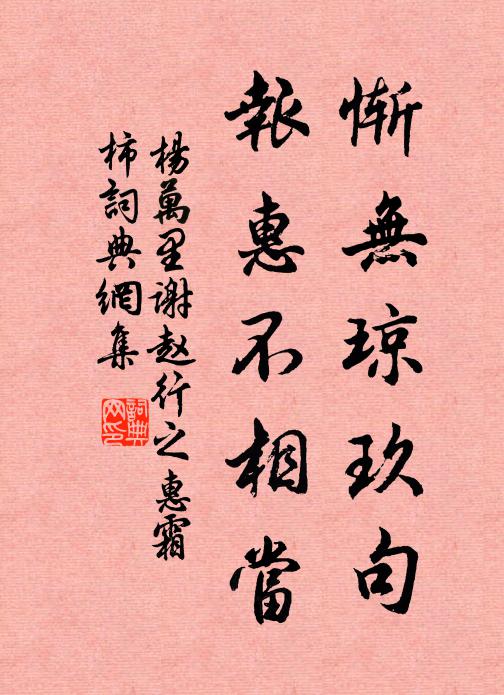 慚無琼玖句
報惠不相當
楊萬里谢赵行之惠霜
柿詞典網集
詞典网印